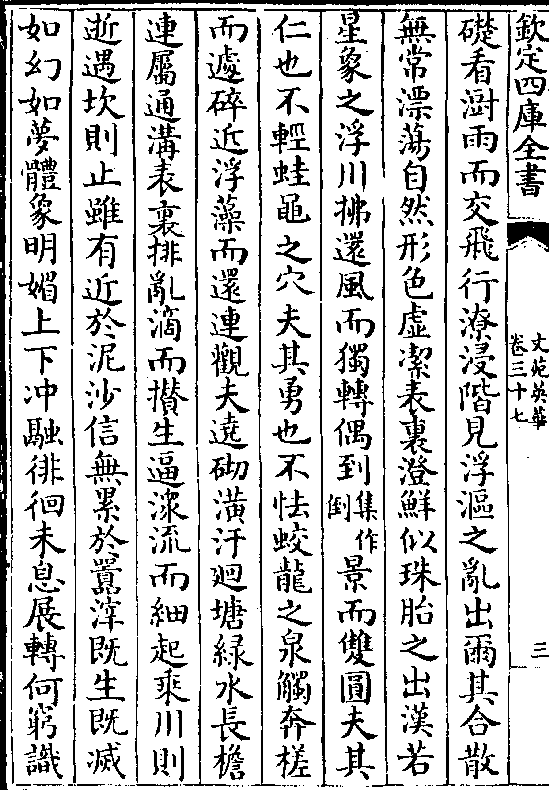 欽定四庫全書
文苑英華
卷三十七
三
礎看澍雨而交飛行潦浸階見浮漚之亂出爾其合散
無常漂蕩自然形色虛潔表裏澄鮮似珠胎之出漢若
星象之浮川拂還風而獨轉偶到集作倒景而雙圓夫其
仁也不輕蛙黽之穴夫其勇也不怯蛟龍之泉觸奔槎
而遽碎近浮藻而還連觀夫遶砌潢汙廻塘緑水長檐
連屬通溝表裏排亂滴而攅生逼淙流而細起乘川則
逝遇坎則止雖有近於泥沙信無累於囂滓既生既滅
如幻如夢體象明媚上下冲融徘徊未息展轉何窮識